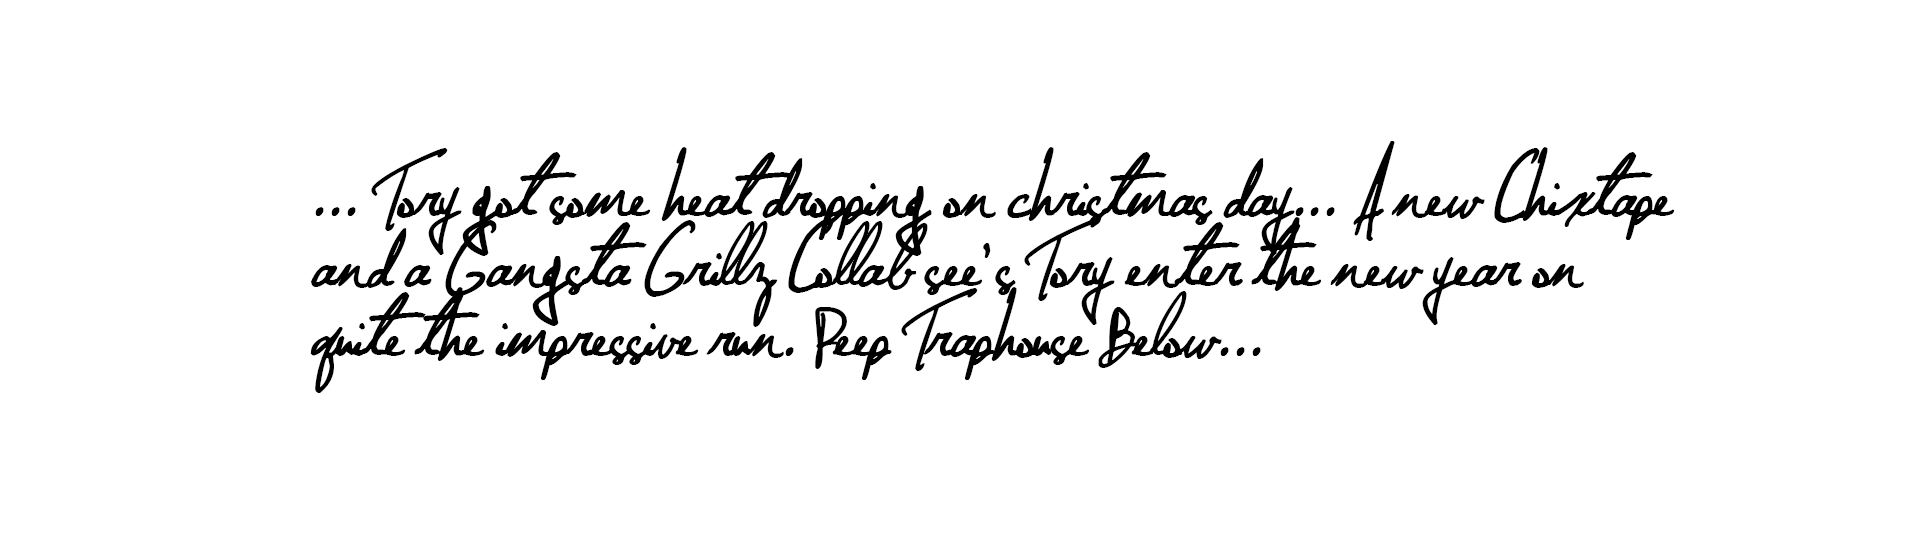 ... Tory got some heat dropping on christmas day... A new Chixtape
and a Gangsta Grillz Collab see's Tory enter the new year on
quite the impressive run. Peep Traphouse Below...